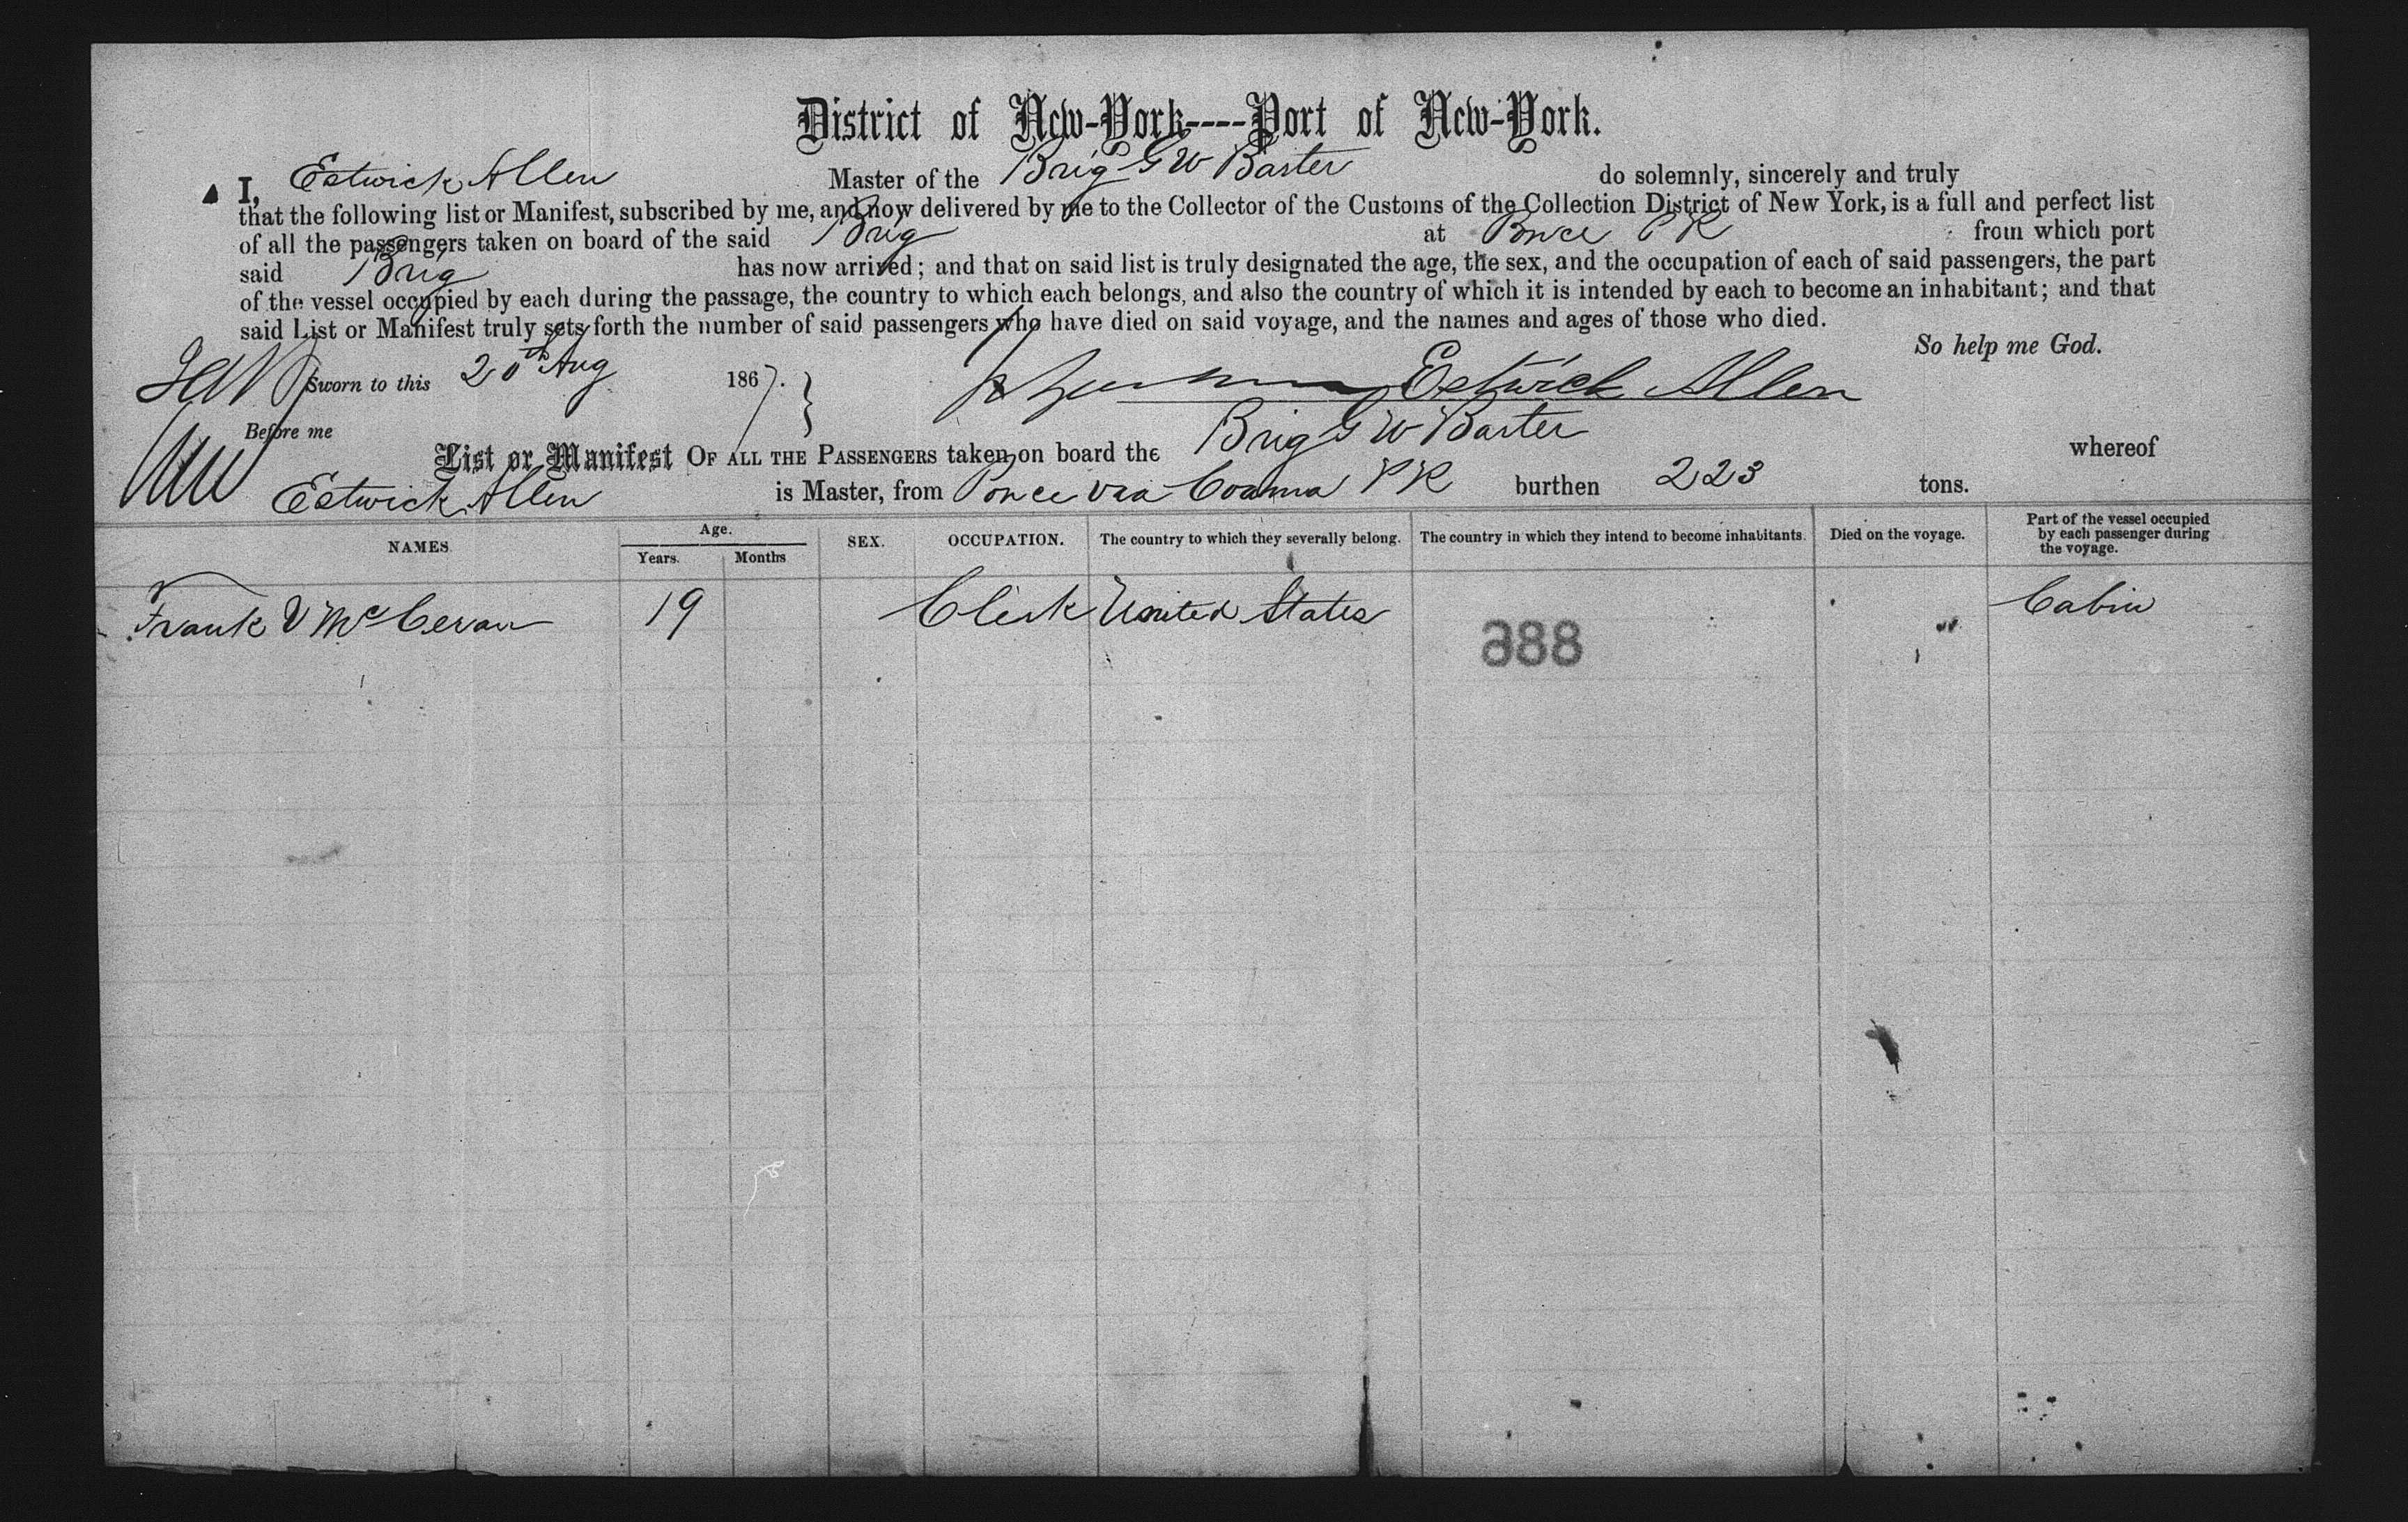 District of New-York----Port of New-York.
I, Estwick Allen Master of the Brig G W Barter do solemnly, sincerely and truly
that the following list or Manifest, subscribed by me, and now delivered by me to the Collector of the Customs of the Collection District of New York, is a full and perfect list
of all the passengers taken on board of the said Brig at Ponce P R from which port
said Brig has now arrived; and that on said list is truly designated the age, the sex, and the occupation of each of said passengers, the part
of the vessel occupied by each during the passage, the country to which each belongs, and also the country of which it is intended by each to become an inhabitant; and that
said List or Manifest truly sets forth the number of said passengers who have died on said voyage, and the names and ages of those who died.
So help me God.
Sworn to this 20th Aug 1867. Estwick Allen
Before me
List or Manifest OF ALL THE PASSENGERS taken on board the Brig G W Barter whereof
Estwick Allen is Master, from Ponce via Coamo P R burthen 223 tons.
NAMES. Age. Years. Months SEX. OCCUPATION. The country to which they severally belong. The country in which they intend to become inhabitants. Died on the voyage. Part of the vessel occupied by each passenger during the voyage.
Frank V 19 Clerk United States Cabin
888